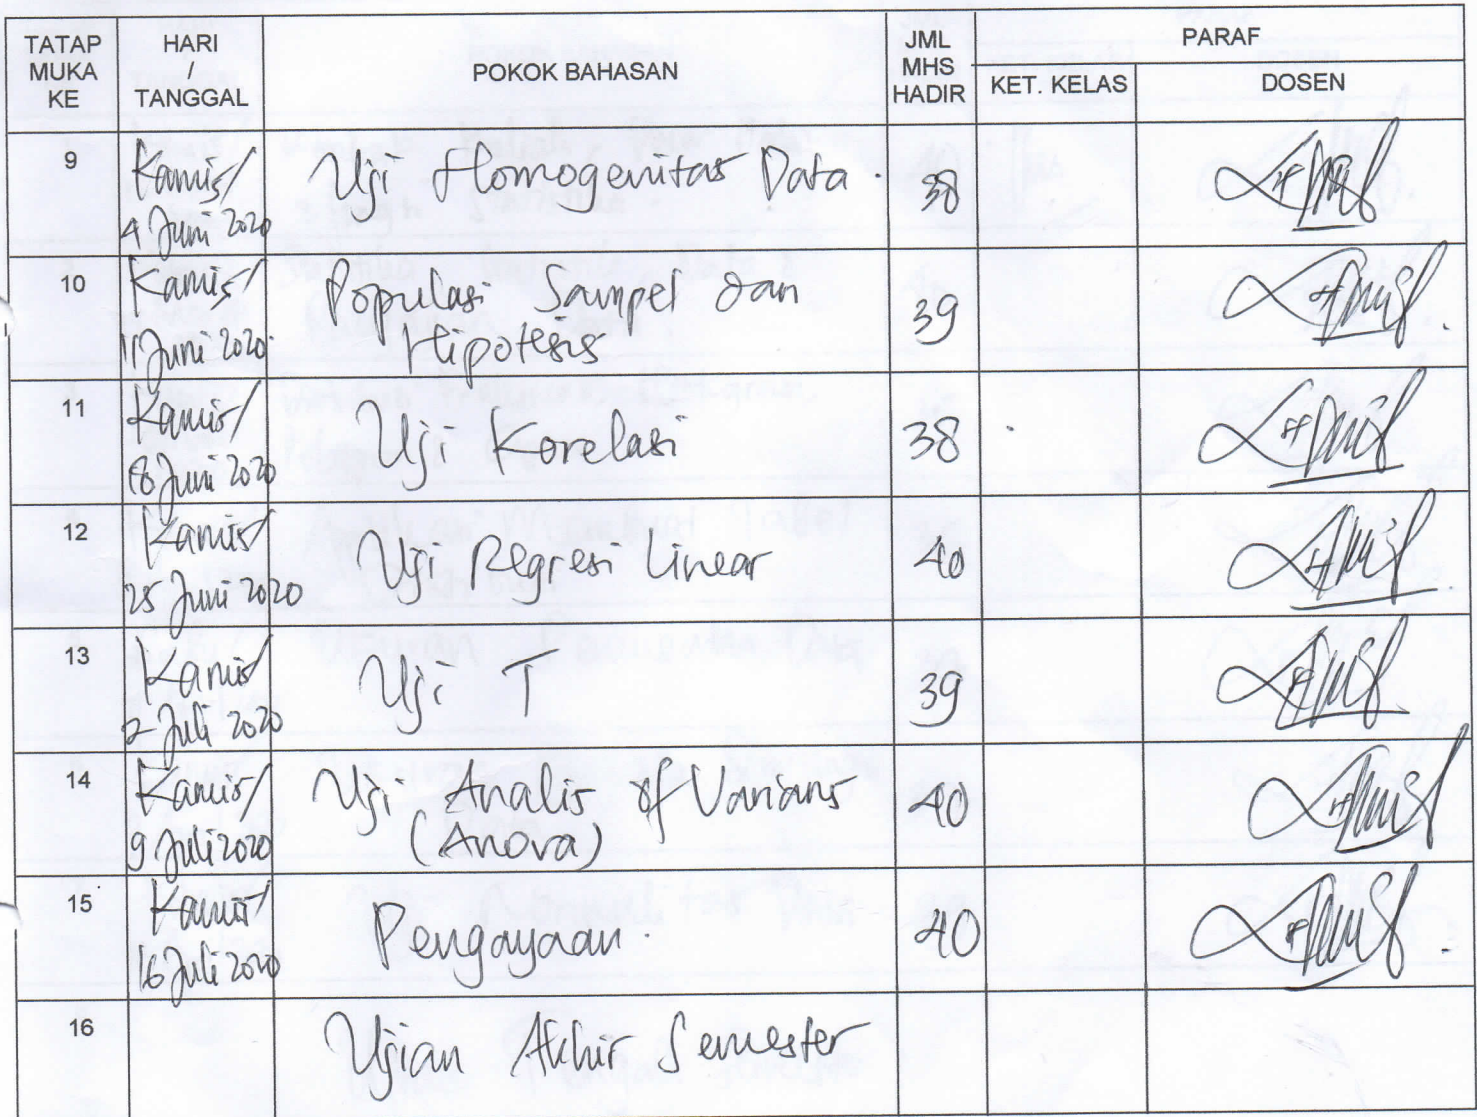 TATAP MUKA KE
HARI / TANGGAL
POKOK BAHASAN
JML MHS HADIR
PARAF
KET. KELAS
DOSEN
9
Kamis/
4 Juni 2020
Uji Homogenitas Data.
38
10
Kamis/
11 Juni 2020
Populasi Sampel dan
Hipotesis
39
11
Kamis/
18 Juni 2020
Uji Korelasi
38
12
Kamis/
25 Juni 2020
Uji Regresi Linear
40
13
Kamis/
2 Juli 2020
Uji T
39
14
Kamis/
9 Juli 2020
Uji Analis of Varians
(Anova)
40
15
Kamis/
16 Juli 2020
Pengayaan.
40
16
Ujian Akhir Semester